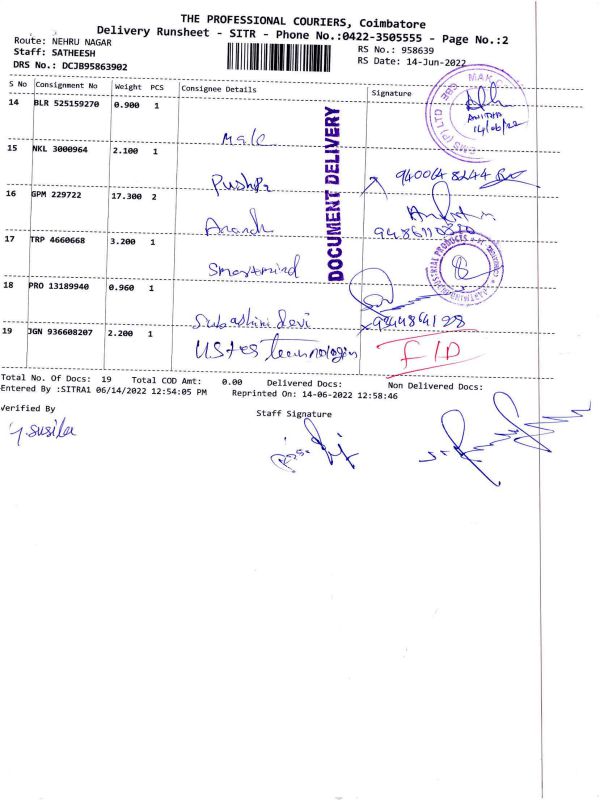 THE PROFESSIONAL COURIERS, Coimbatore
Delivery Runsheet - SITR - Phone No.:0422-3505555 - Page No.:2
Route: NEHRU NAGAR
RS No.: 958639
Staff: SATHEESH
RS Date: 14-Jun-2022
DRS No.: DCJB95863902
S No Consignment No Weight PCS Consignee Details Signature
14 BLR 525159270 0.900 1
ANITHA
14/06/22
15 NKL 3000964 2.100 1
Pushpa
16 GPM 229722 17.300 2
Anandh
17 TRP 4660668 3.200 1
Smartmind
18 PRO 13189940 0.960 1
Subashini devi
19 JGN 936608207 2.200 1
F/D
DOCUMENT DELIVERY
Total No. Of Docs: 19 Total COD Amt: 0.00 Delivered Docs: Non Delivered Docs:
Entered By :SITRA1 06/14/2022 12:54:05 PM Reprinted On: 14-06-2022 12:58:46
Verified By
Staff Signature
y.susila